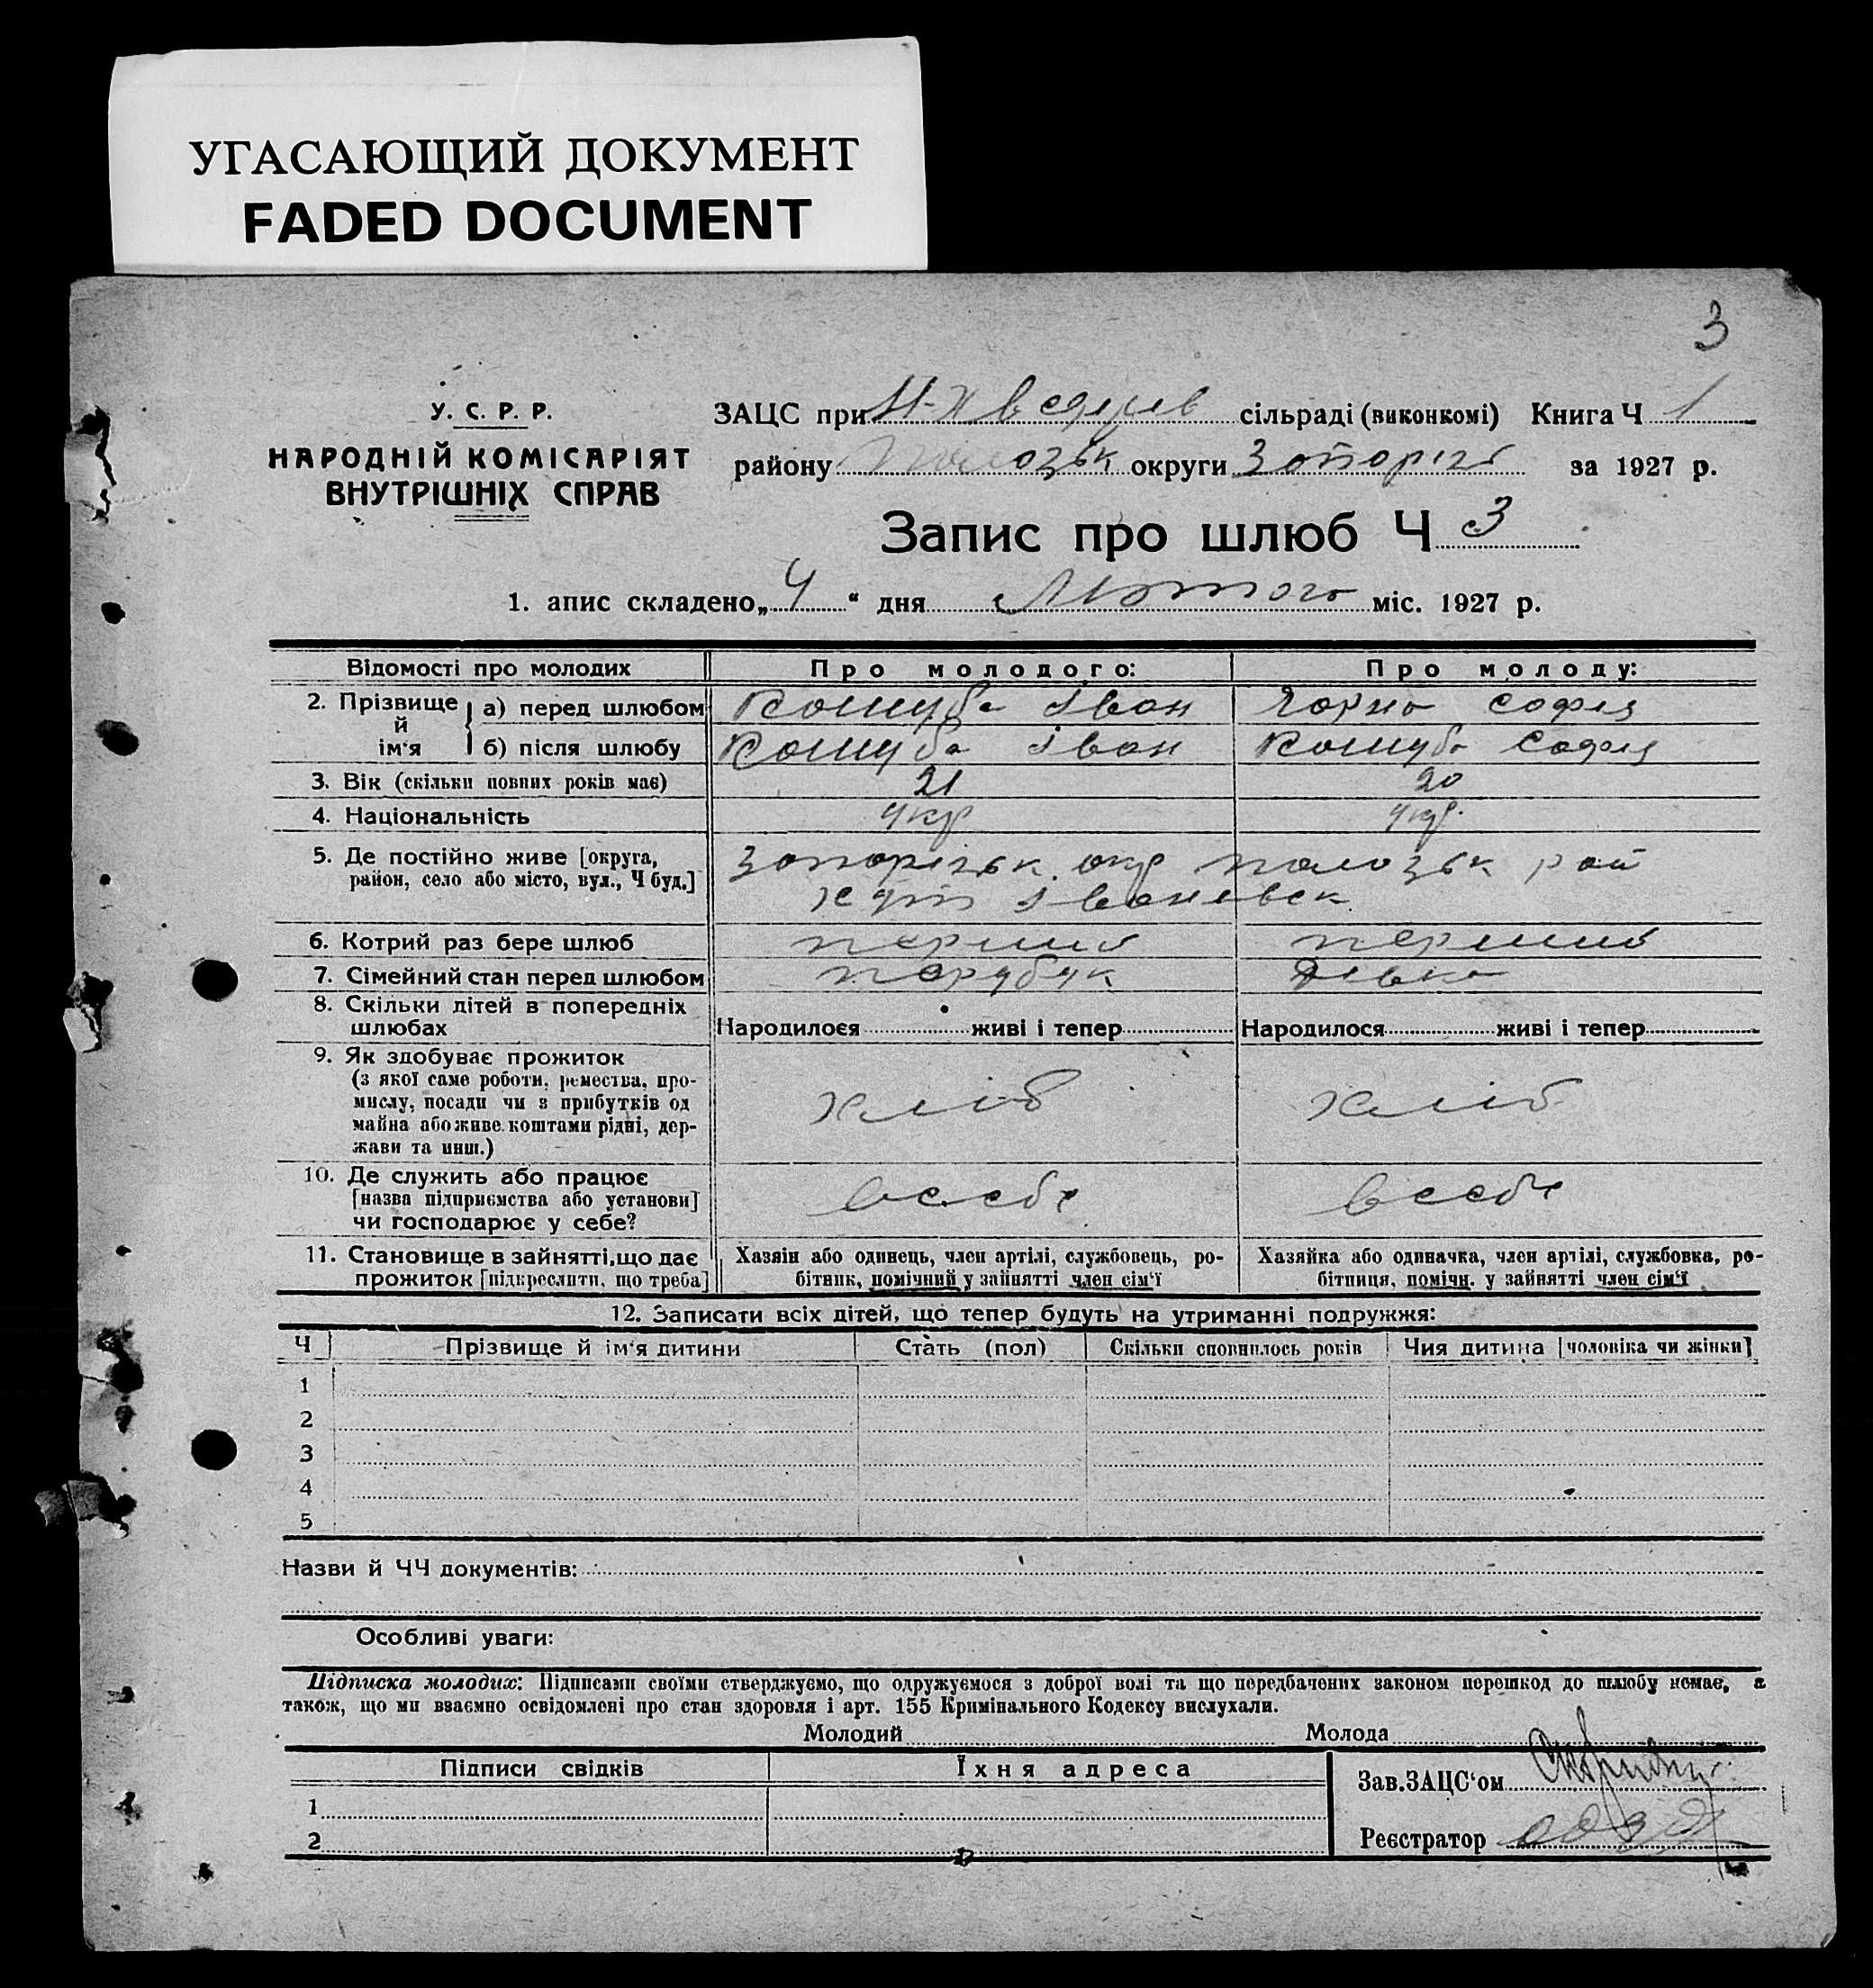 УГАСАЮЩИЙ ДОКУМЕНТ
FADED DOCUMENT
3
У. С. Р. Р.
НАРОДНІЙ КОМІСАРІЯТ
ВНУТРІШНІХ СПРАВ
ЗАЦС при сільраді (виконкомі) Книга Ч 1
району Полозьк округи Запоріз за 1927 р.
Запис про шлюб Ч 3
1. апис складено „ 4 “ дня Лютого міс. 1927 р.
Відомості про молодих Про молодого: Про молоду:
2. Прізвище й ім'я а) перед шлюбом Кошуба Іван Чорна Софія
б) після шлюбу Кошуба Іван Кошуба Софія
3. Вік (скільки повних років має) 21 20
4. Національність Укр Укр.
5. Де постійно живе [округа, район, село або місто, вул., Ч буд.] Запорізьк. окр Полозьк рай
хут Іванівськ
6. Котрий раз бере шлюб перший перший
7. Сімейний стан перед шлюбом парубук дівка
8. Скільки дітей в попередніх шлюбах Народилося живі і тепер Народилося живі і тепер
9. Як здобуває прожиток
(з якої саме роботи, ремества, про-
мислу, посади чи з прибутків од
майна або живе коштами рідні, дер-
жави та инш.) хліб хліб
10. Де служить або працює
[назва підприємства або установи]
чи господарює у себе? в себе в себе
11. Становище в зайнятті, що дає
прожиток [підкреслити, що треба]
Хазяїн або одинець, член артілі, службовець, ро-
бітник, помічний у зайнятті член сім'ї
Хазяйка або одиначка, член артілі, службовка, ро-
бітниця, помічн. у зайнятті член сім'ї
12. Записати всіх дітей, що тепер будуть на утриманні подружжя:
Ч Прізвище й ім'я дитини Стать (пол) Скільки сповнилось років Чия дитина [чоловіка чи жінки]
1
2
3
4
5
Назви й ЧЧ документів:
Особливі уваги:
Підписка молодих: Підписами своїми стверджуємо, що одружуємося з доброї волі та що передбачених законом перешкод до шлюбу немає, а
також, що ми взаємно освідомлені про стан здоровля і арт. 155 Кримінального Кодексу вислухали.
Молодий Молода
Підписи свідків Їхня адреса
1
2
Зав. ЗАЦС'ом
Реєстратор